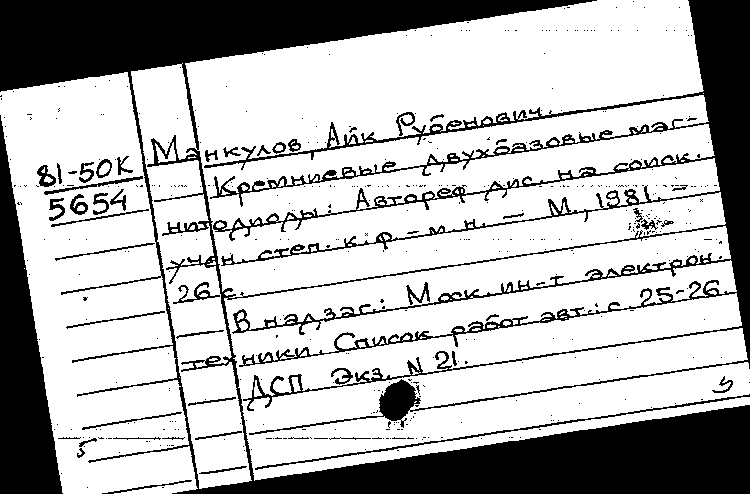 81-50К
5654
Манкулов, Айк Рубенович.
Кремниевые двухбазовые маг-
нитодиоды: Автореф дис. на соиск.
учен. степ. к. ф.-м. н. — М., 1981. —
26 с.
В надзаг.: Моск. ин-т электрон.
техники. Список работ авт.: с. 25-26.
ДСП Экз. N 21.
5